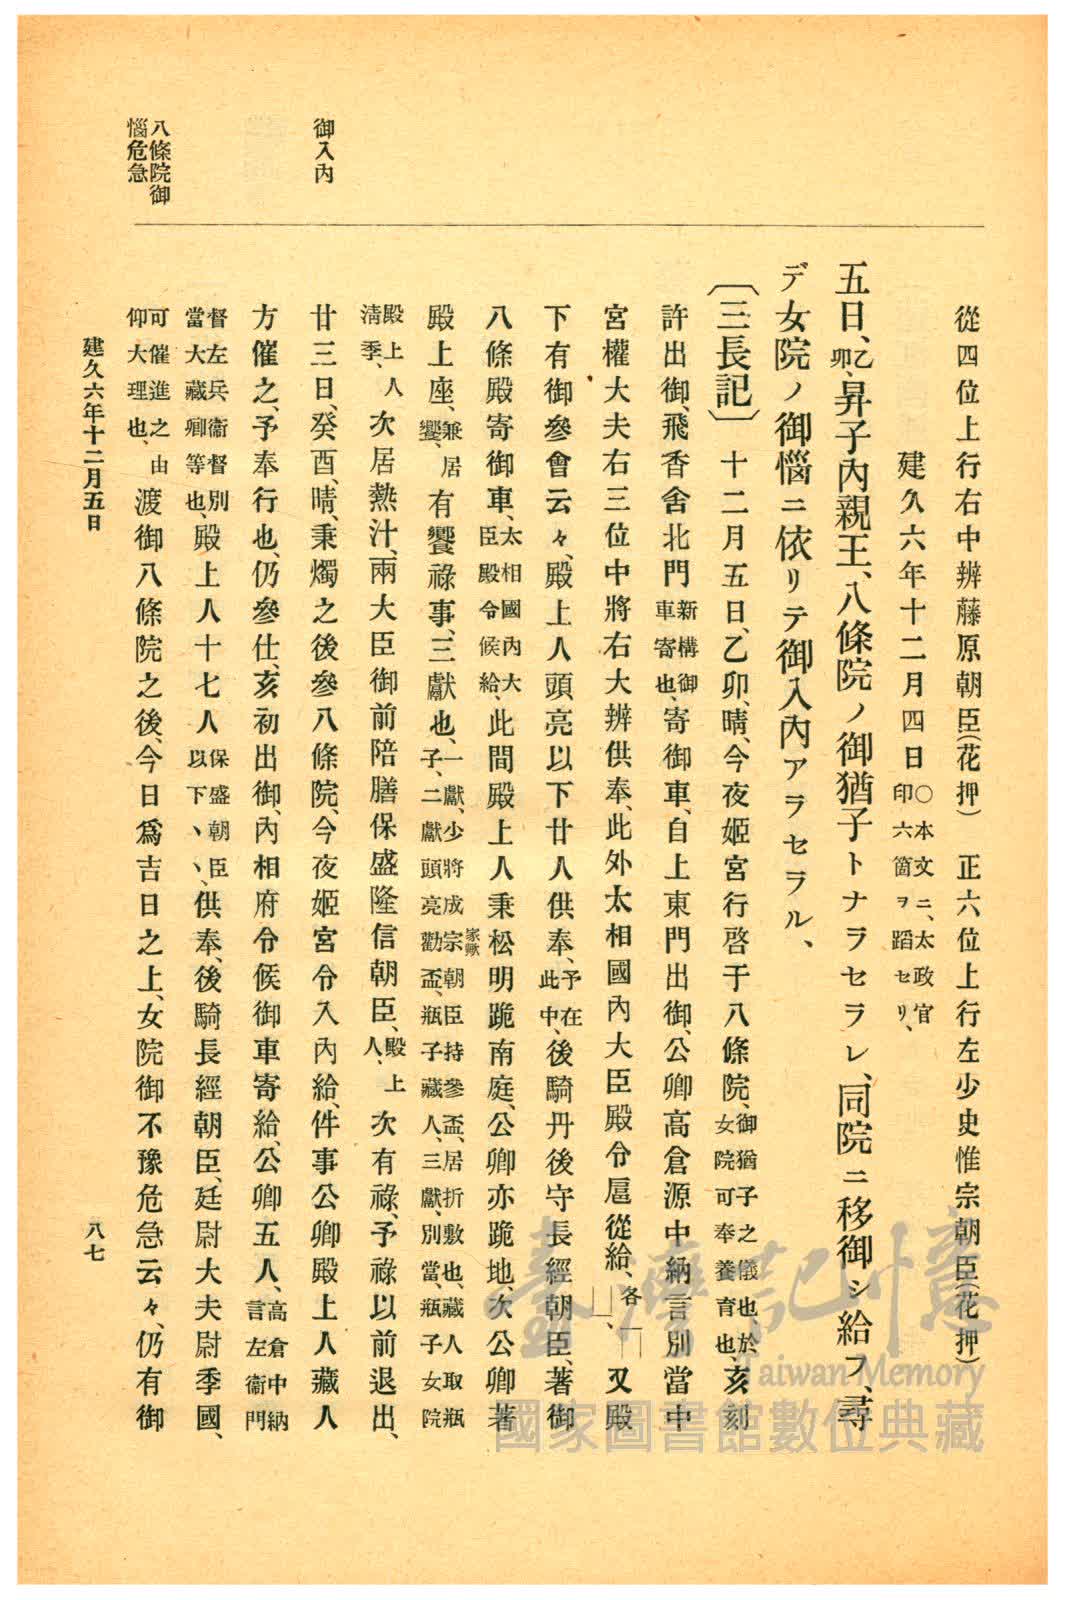 從四位上行右中辨藤原朝臣(花押) 正六位上行左少史惟宗朝臣(花押)
建久六年十二月四日○本文ニ、太政官印六箇ヲ蹈セリ、
五日、乙卯、昇子內親王、八條院ノ御猶子トナラセラレ、同院ニ移御シ給フ、尋
デ女院ノ御惱ニ依リテ御入內アラセラル、
〔三長記〕十二月五日、乙卯、晴、今夜姬宮行啓于八條院、御猶子之儀也、於女院可奉養育也、亥刻
許出御、飛香舍北門新構御車寄也、寄御車、自上東門出御、公卿高倉源中納言別當中
宮權大夫右三位中將右大辨供奉、此外太相國內大臣殿令扈從給、各□□、又殿
下有御參會云々、殿上人頭亮以下廿人供奉、予在此中、後騎丹後守長經朝臣、著御
八條殿寄御車、太相國內大臣殿令候給、此間殿上人秉松明跪南庭、公卿亦跪地、次公卿著
殿上座、兼居饗、有饗祿事、三獻也、一獻、少將成宗家歟朝臣持參盃、居折敷也、藏人取瓶子、二獻頭亮勸盃、瓶子藏人、三獻、別當、瓶子女院
殿上人淸季、次居熱汁、兩大臣御前陪膳保盛隆信朝臣、殿上人、次有祿、予祿以前退出、
廿三日、癸酉、晴、秉燭之後參八條院、今夜姬宮令入內給、件事公卿殿上人藏人
方催之、予奉行也、仍參仕、亥初出御、內相府令候御車寄給、公卿五人、高倉中納言左衞門
督左兵衞督別當大藏卿等也、殿上人十七人保盛朝臣以下、丶丶、供奉、後騎長經朝臣、廷尉大夫尉季國、
可催進之由仰大理也、渡御八條院之後、今日爲吉日之上、女院御不豫危急云々、仍有御
御入內
八條院御
惱危急
建久六年十二月五日
八七
臺灣記憶
Taiwan Memory
國家圖書館數位典藏